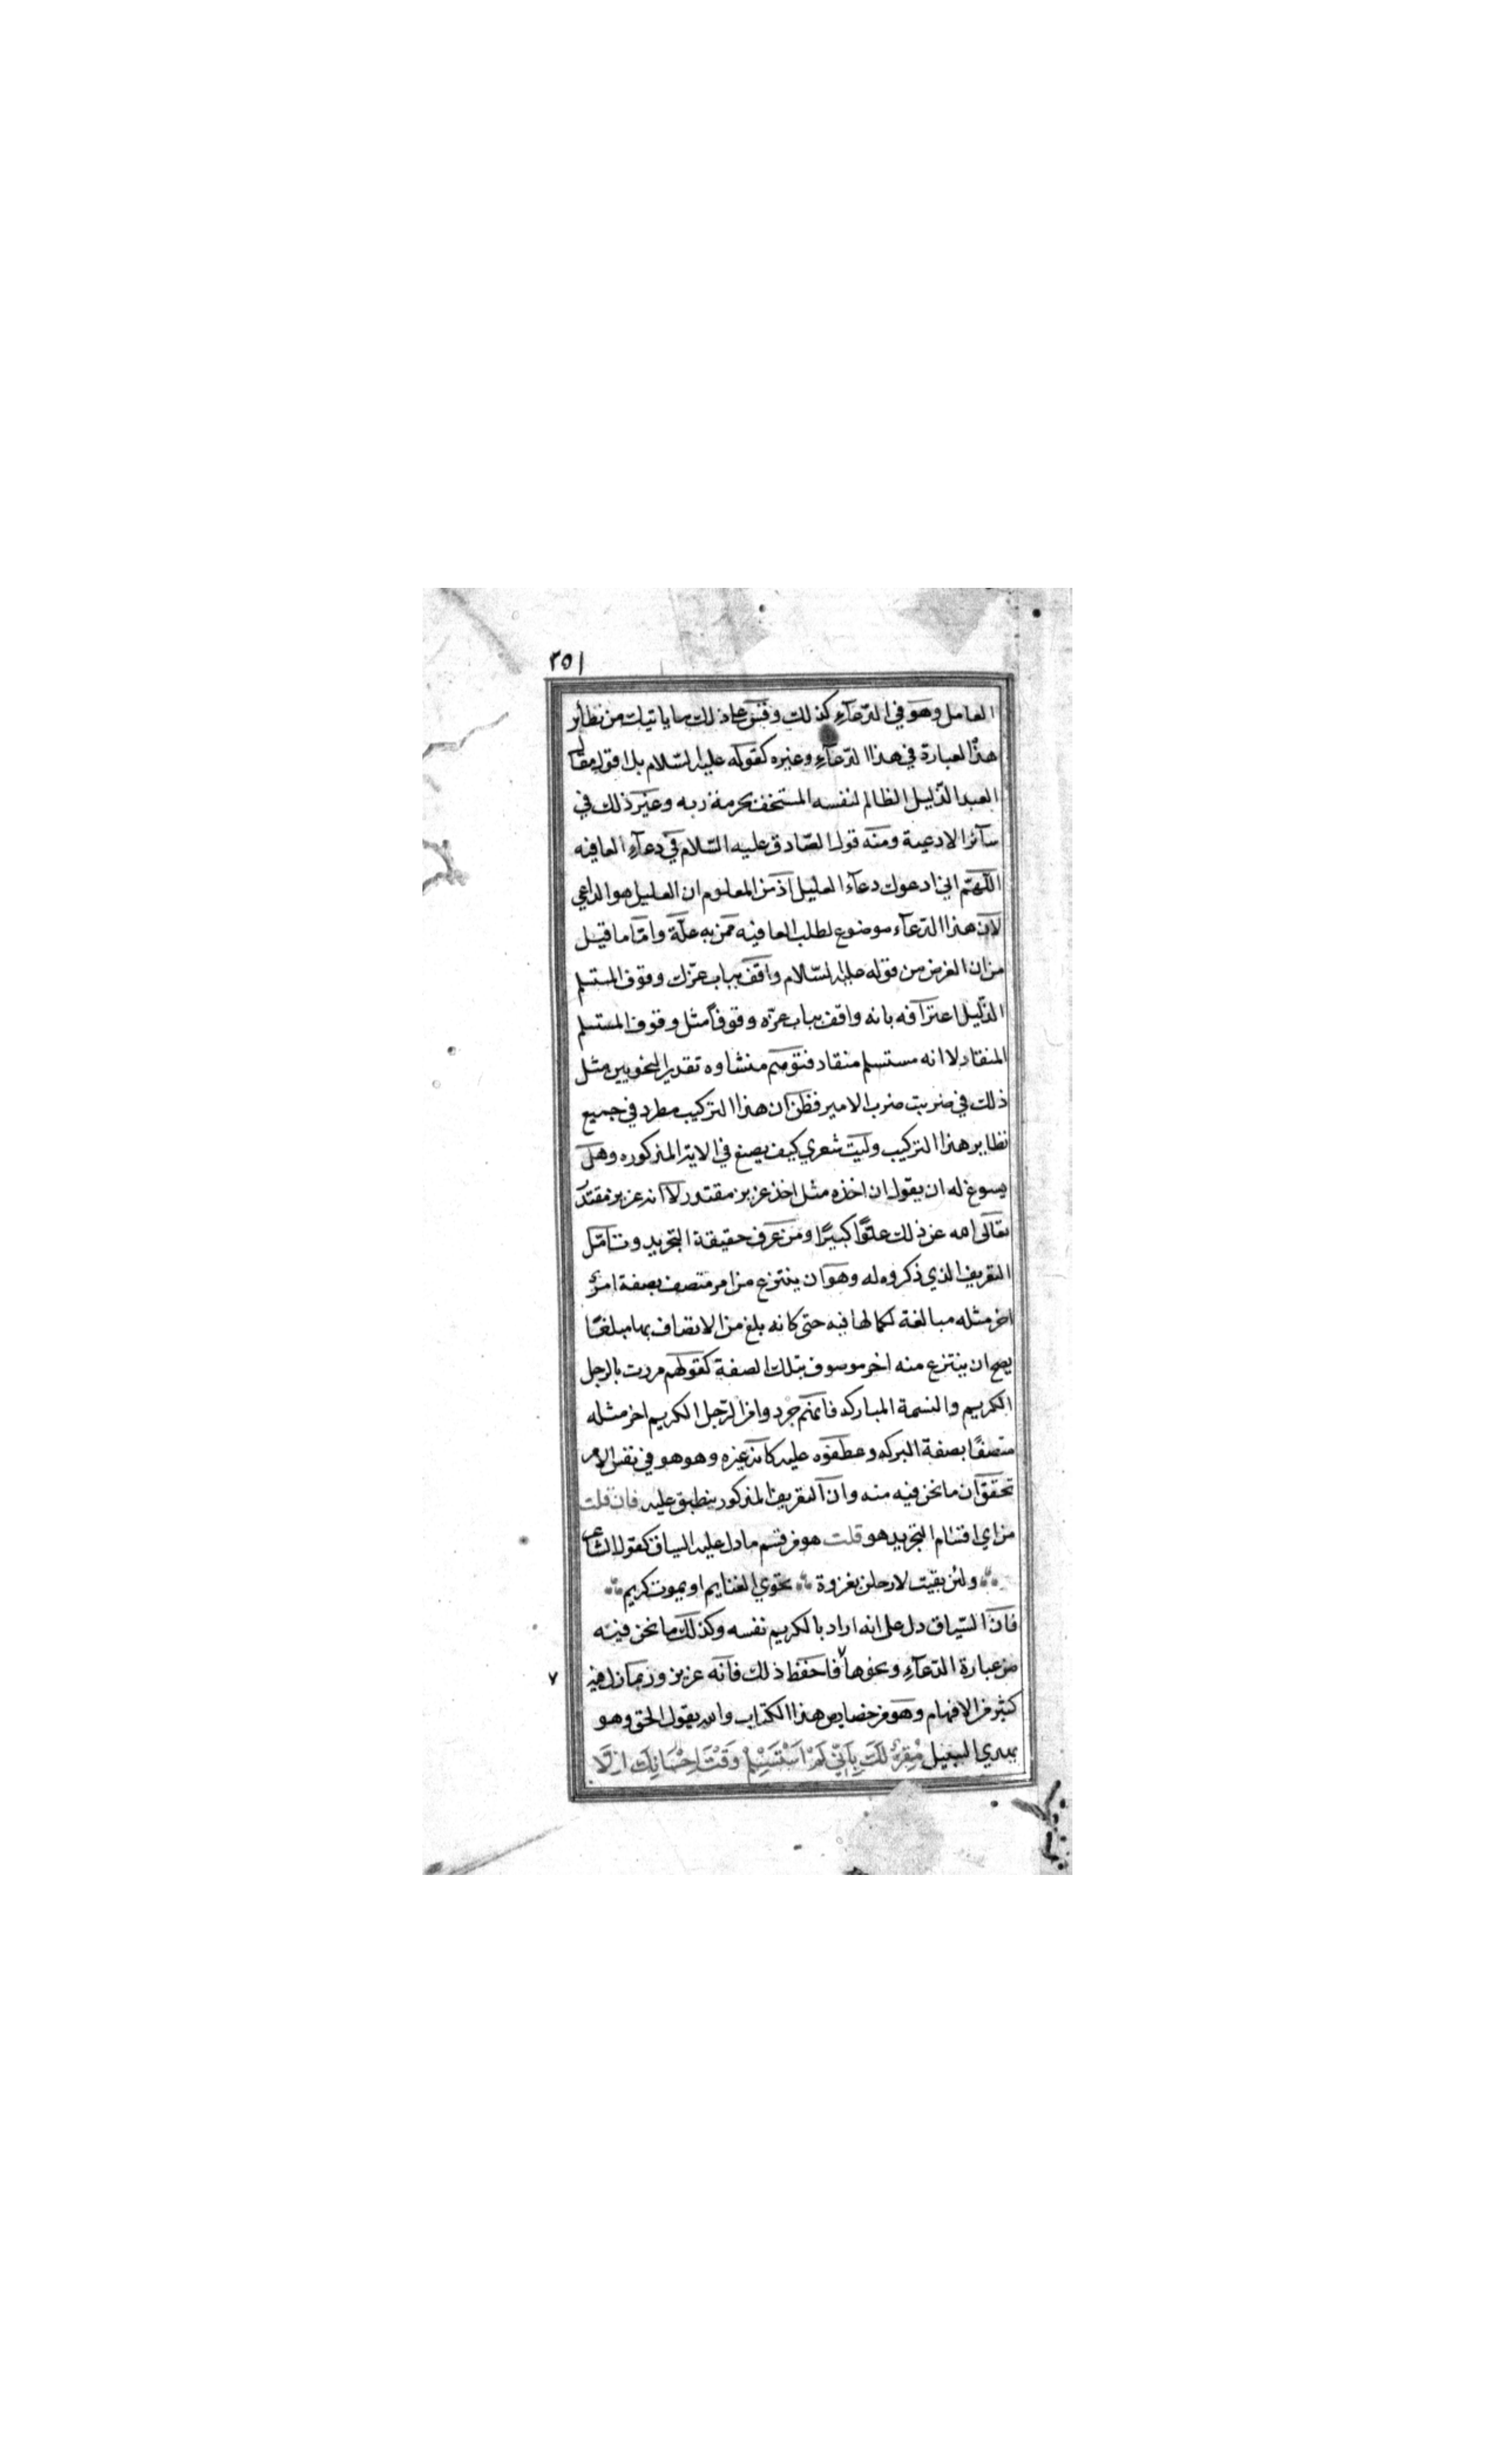 ٣٥١
العامل وهو في الدّعآء كذلك وقس على ذلك ما ياتيك من نظائر
هذه العبارة في هذا الدّعآء وغيره كقوله عليه السّلام بل اقول مقال
العبد الذّليل الظالم لنفسه المستخف بحرمة ربه وغير ذلك في
سآئر الادعية ومنه قول الصّادق عليه السّلام في دعآء العافيه
اللّهمّ اني ادعوك دعآء العليل اذ من المعلوم ان العليل هو الداعي
لان هذا الدّعآء موضوع لطلب العافيه ممن به علّة وامّا ما قيل
من ان الغرض من قوله عليه السّلام واقف بباب عزّك وقوف المستسلم
الذّليل اعترافه بانه واقف بباب عزّه وقوفًا مثل وقوف المستسلم
المنقاد لا انه مستسلم منقاد فتوهم منشاوه تقدير النحويين مثل
ذلك في ضربت ضرب الامير فظن ان هذا التركيب مطرد في جميع
نظاير هذا التركيب وليت شعري كيف يصنع في الاية المذكوره وهل
يسوغ له ان يقول ان اخذه مثل اخذ عزيز مقتدر لا انه عزيز مقتدر
تعالى الله عن ذلك علوًّا كبيرًا ومن عرف حقيقة التجريد وتامّل
التعريف الذي ذكروه له وهو ان ينتزع من امر متصف بصفة امرٌ
اخر مثله مبالغة لكمالها فيه حتى كانه بلغ من الاتصاف بها مبلغًا
يصح ان ينتزع منه اخر موصوف بتلك الصفة كقولهم مررت بالرجل
الكريم والنسمة المباركه فانهم جردوا من الرّجل الكريم اخر مثله
متصفًا بصفة البركه وعطفوه عليه كانه غيره وهو هو في نفس الامر
تحقق ان ما نحن فيه منه وان التعريف المذكور ينطبق عليه فان قلت
من اي اقسام التجريد هو قلت هو من قسم ما دل عليه السياق كقول الشاعر
ولئن بقيت لارحلن بغزوة تحوي الغنايم او يموت كريم
فان السّياق دل على انه اراد بالكريم نفسه وكذلك ما نحن فيه
من عبارة الدّعآء ونحوها فاحفظ ذلك فانه عزيز وربما زل فيه
٧
كثير من الافهام وهو من خصايص هذا الكتاب والله يقول الحق وهو
يهدي السبيل مُقِرٌّ لَكَ بِاَنّي لَمْ اَسْتَسْلِمْ وَقْتَ اِحْسَانِكَ اِلَّا